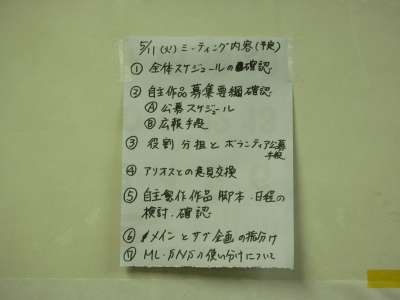 5/11(火)ミーティング内容(予定)
① 全体スケジュールの確認
② 自主作品募集要綱確認
Ⓐ 公募スケジュール
Ⓑ 広報手段
③ 役割分担とボランティア公募
手段
④ アリオスとの意見交換
⑤ 自主製作作品 脚本・日程の
検討・確認
⑥ メインとサブ企画の振分け
⑦ ML・BBSの使い分けについて